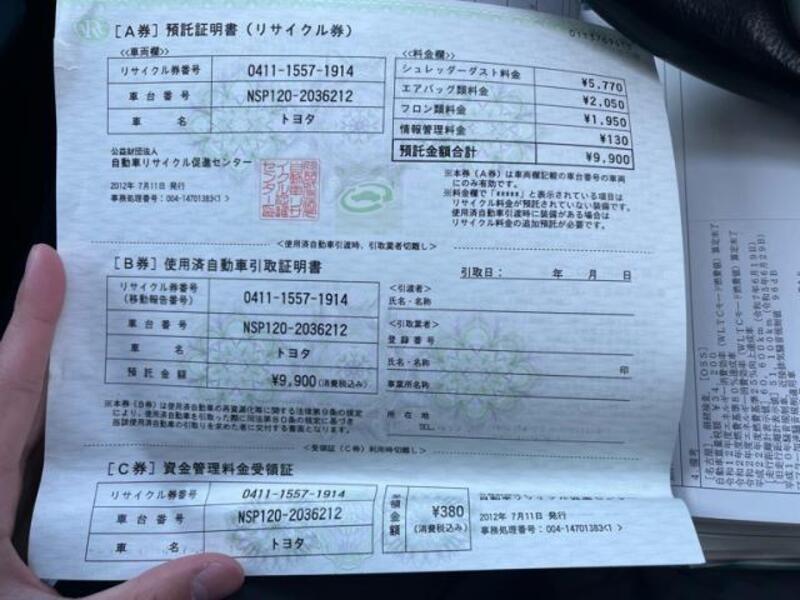 [A券] 預託証明書 (リサイクル券)
≪車両欄≫
リサイクル券番号 0411-1557-1914
車台番号 NSP120-2036212
車名 トヨタ
≪料金欄≫
シュレッダーダスト料金 ¥5,770
エアバッグ類料金 ¥2,050
フロン類料金 ¥1,950
情報管理料金 ¥130
預託金額合計 ¥9,900
公益財団法人
自動車リサイクル促進センター
2012年 7月11日 発行
事務処理番号:004-14701383<1>
※本券(A券)は車両欄記載の車台番号の車両
にのみ有効です。
※料金欄で「*****」と表示されている項目は
リサイクル料金が預託されていない装備です。
使用済自動車引渡時に装備がある場合は
リサイクル料金の追加預託が必要です。
<使用済自動車引渡時、引取業者切離し>
[B券] 使用済自動車引取証明書
引取日: 年 月 日
リサイクル券番号
(移動報告番号) 0411-1557-1914
車台番号 NSP120-2036212
車名 トヨタ
預託金額 ¥9,900(消費税込み)
<引渡者>
氏名・名称
<引取業者>
登録番号
氏名・名称 印
事業所名称
所在地
TEL.
※本券(B券)は使用済自動車の再資源化等に関する法律第9条の規定
により、使用済自動車を引取った際に同法第80条の規定に基づき
当該使用済自動車の引取りを求めた者に交付する書面となります。
<受領証(C券)利用時切離し>
[C券] 資金管理料金受領証
リサイクル券番号 0411-1557-1914
車台番号 NSP120-2036212
車名 トヨタ
領金額 ¥380
(消費税込み)
2012年 7月11日 発行
事務処理番号:004-14701383<1>
4.備考